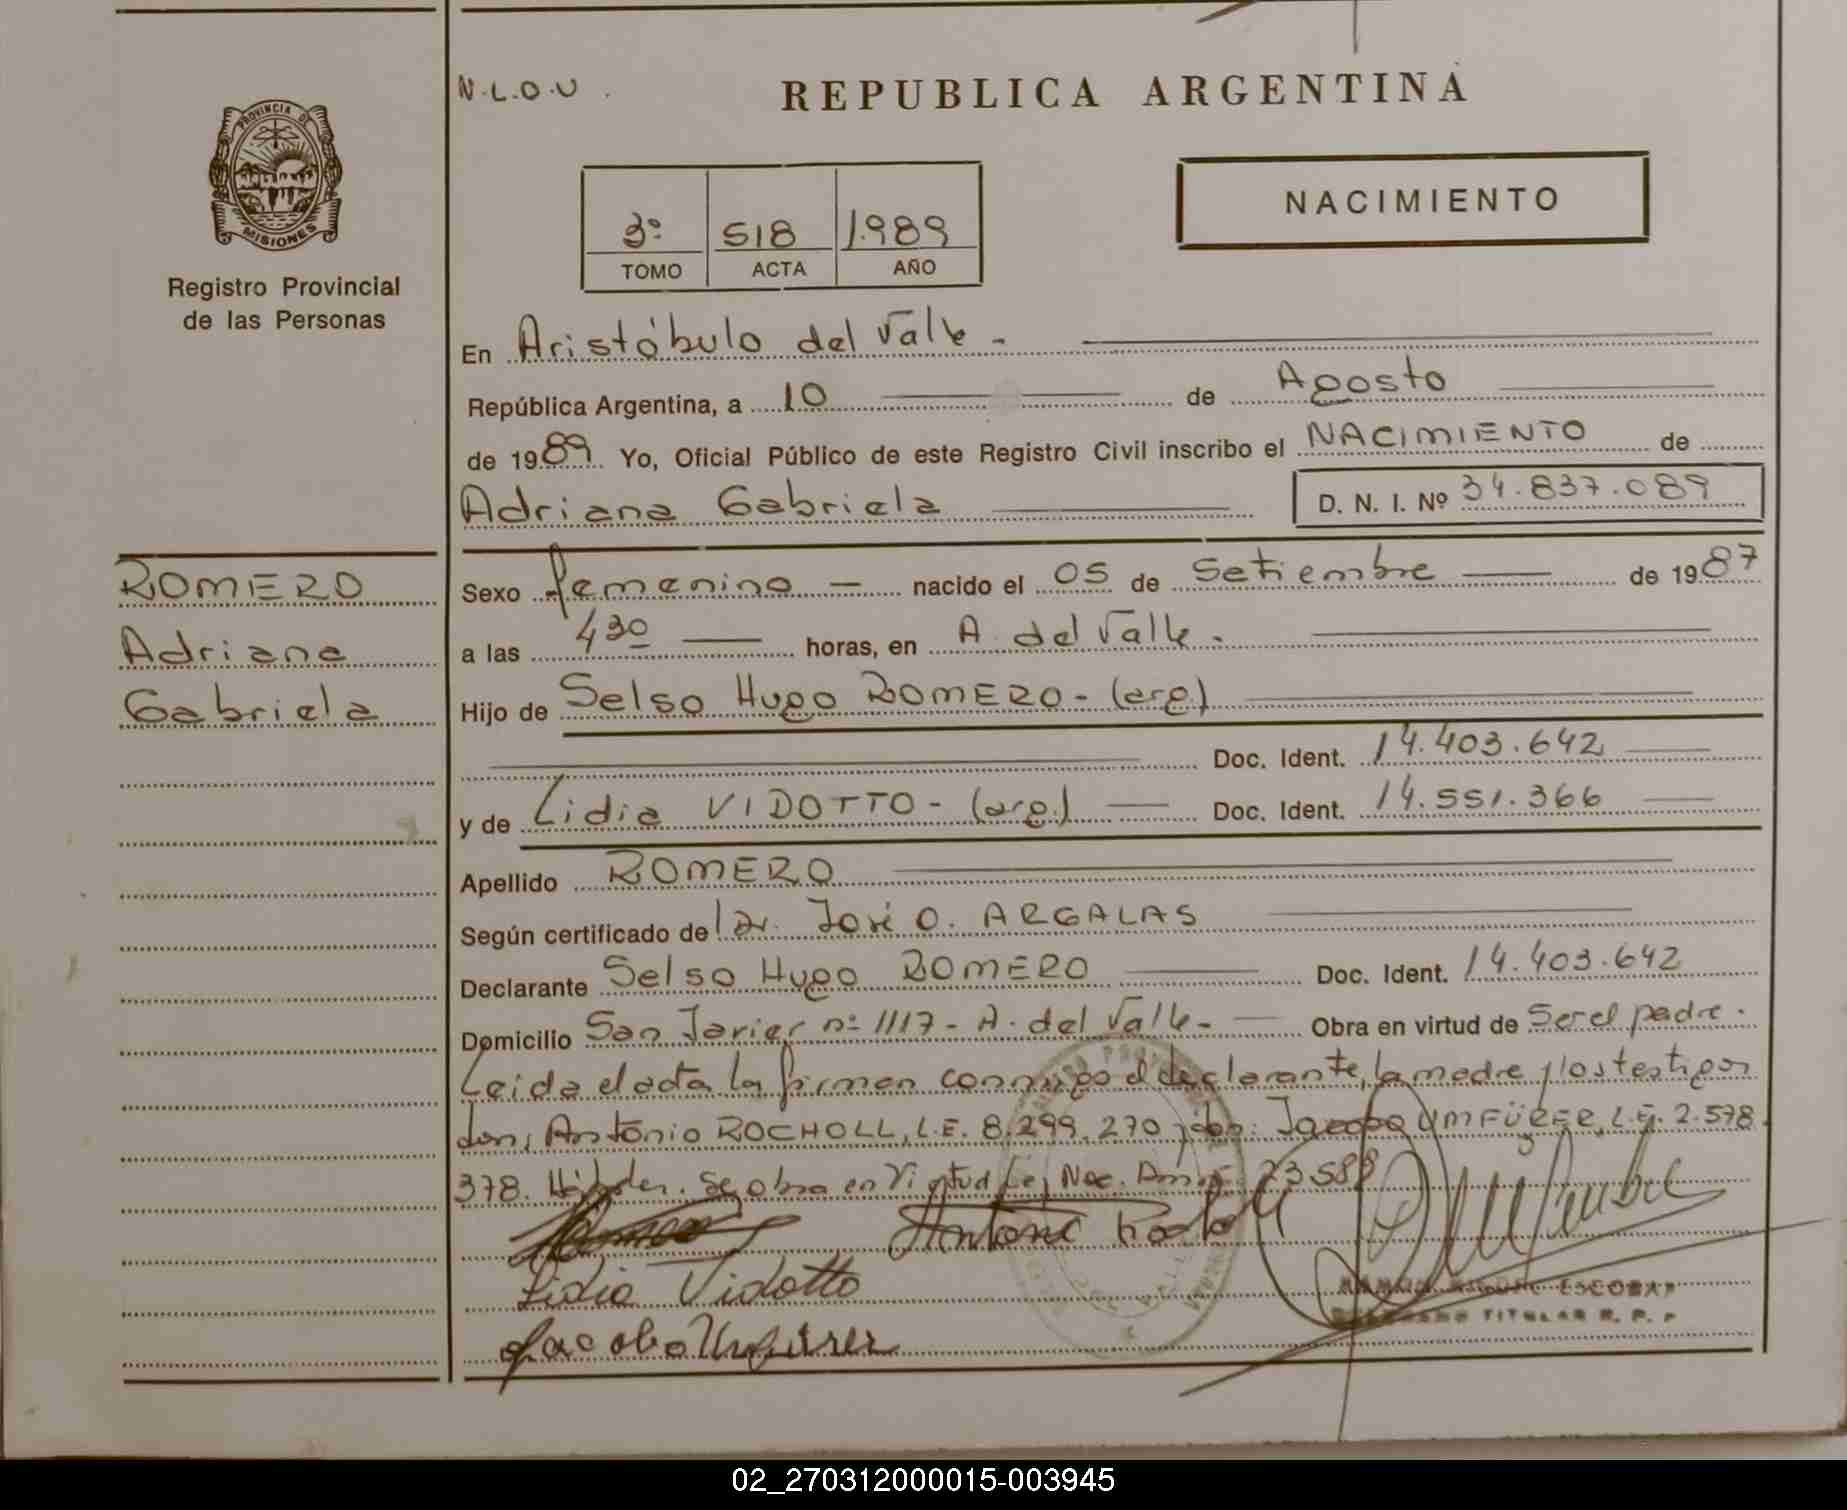 N.L.O.U.
REPUBLICA ARGENTINA
PROVINCIA DE
MISIONES
Registro Provincial
de las Personas
3º 518 1.989
TOMO ACTA AÑO
NACIMIENTO
En Aristóbulo del Valle -
República Argentina, a 10 de Agosto
de 1989 Yo, Oficial Público de este Registro Civil inscribo el NACIMIENTO de
Adriana Gabriela D. N. I. Nº 34.837.089
ROMERO
Adriana
Gabriela
Sexo femenino — nacido el 05 de Setiembre de 1987
a las 430 horas, en A. del Valle -
Hijo de Selso Hugo ROMERO - (arg)
Doc. Ident. 14.403.642
y de Lidia VIDOTTO - (arg.) Doc. Ident. 14.551.366
Apellido ROMERO
Según certificado de Dr. José O. ARGALAS
Declarante Selso Hugo ROMERO Doc. Ident. 14.403.642
Domicilio San Javier nº 1117 - A. del Valle - Obra en virtud de Ser el padre.
Leida el acta la firman conmigo el declarante, la madre y los testigos
don, Antonio ROCHOLL, L.E. 8.299.270 y don: Jacobo UMFÜRER, L.E. 2.578.
378. Se obra en Virtud Ley Nac. 23.588
Antonio Rocholl
Lidia Vidotto
Jacobo Umfürer
ESCOBAR
TITULAR R. P. P
02_270312000015-003945